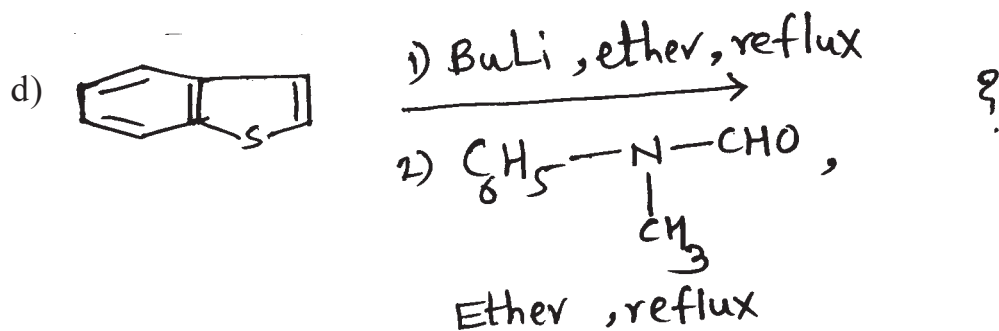 d)
1) BuLi, ether, reflux
S
?
2) C6H5—N—CHO,
CH3
Ether, reflux